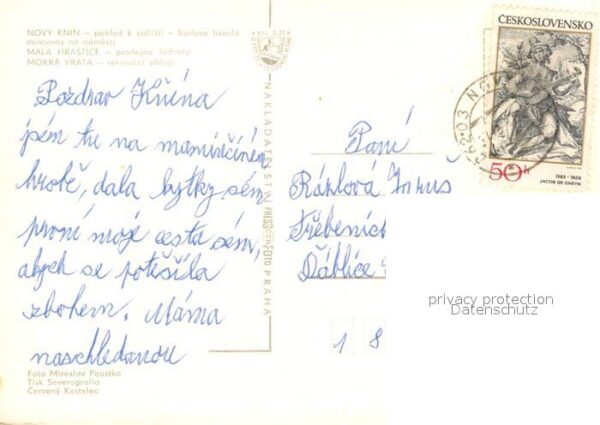 NOVÝ KNÍN – pohled k sídlišti – budova bývalé
mincovny na náměstí
MALÁ HRAŠTICE – prodejna Jednoty
MOKRÁ VRATA – rekreační oblast
Pozdrav Knína
jsem tu na maminčiném
hrobě, dala kytky sem
první moje cesta sem,
abych se potěšila
zbohem. Máma
naschledanou
Foto Miroslav Poustka
Tisk Severografia
Červený Kostelec
NAKLADATELSTVÍ PRESSFOTO PRAHA
ČESKOSLOVENSKO
50h
JACOB DE GHEYN
Paní
Ráklová
Třebenick
Ďáblice
1 8
privacy protection
Datenschutz